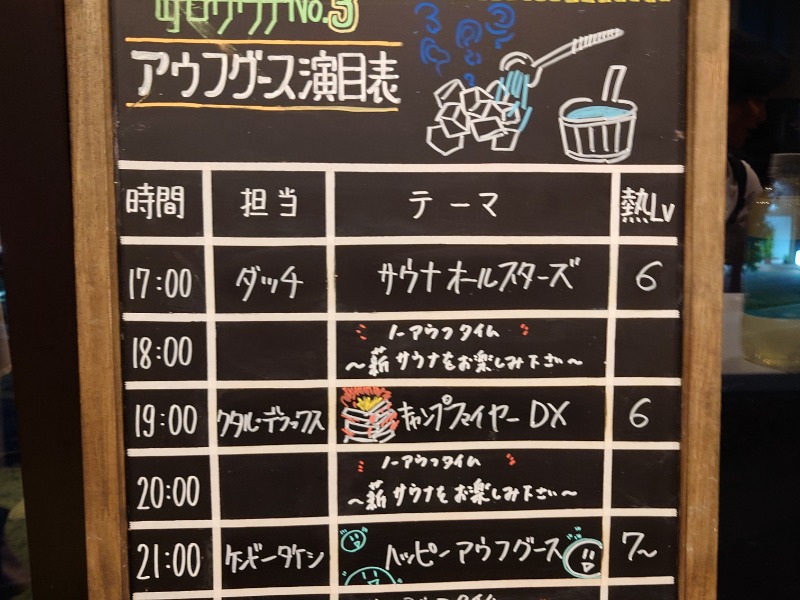 No.3
アウフグース演目表
時間 担当 テーマ 熱Lv
17:00 ダッチ サウナオールスターズ 6
ノーアウフタイム
18:00 ～薪サウナをお楽しみ下さい～
19:00 クタル・デラックス キャンプファイヤーDX 6
ノーアウフタイム
20:00 ～薪サウナをお楽しみ下さい～
21:00 ケンドータケシ ハッピーアウフグース 7～